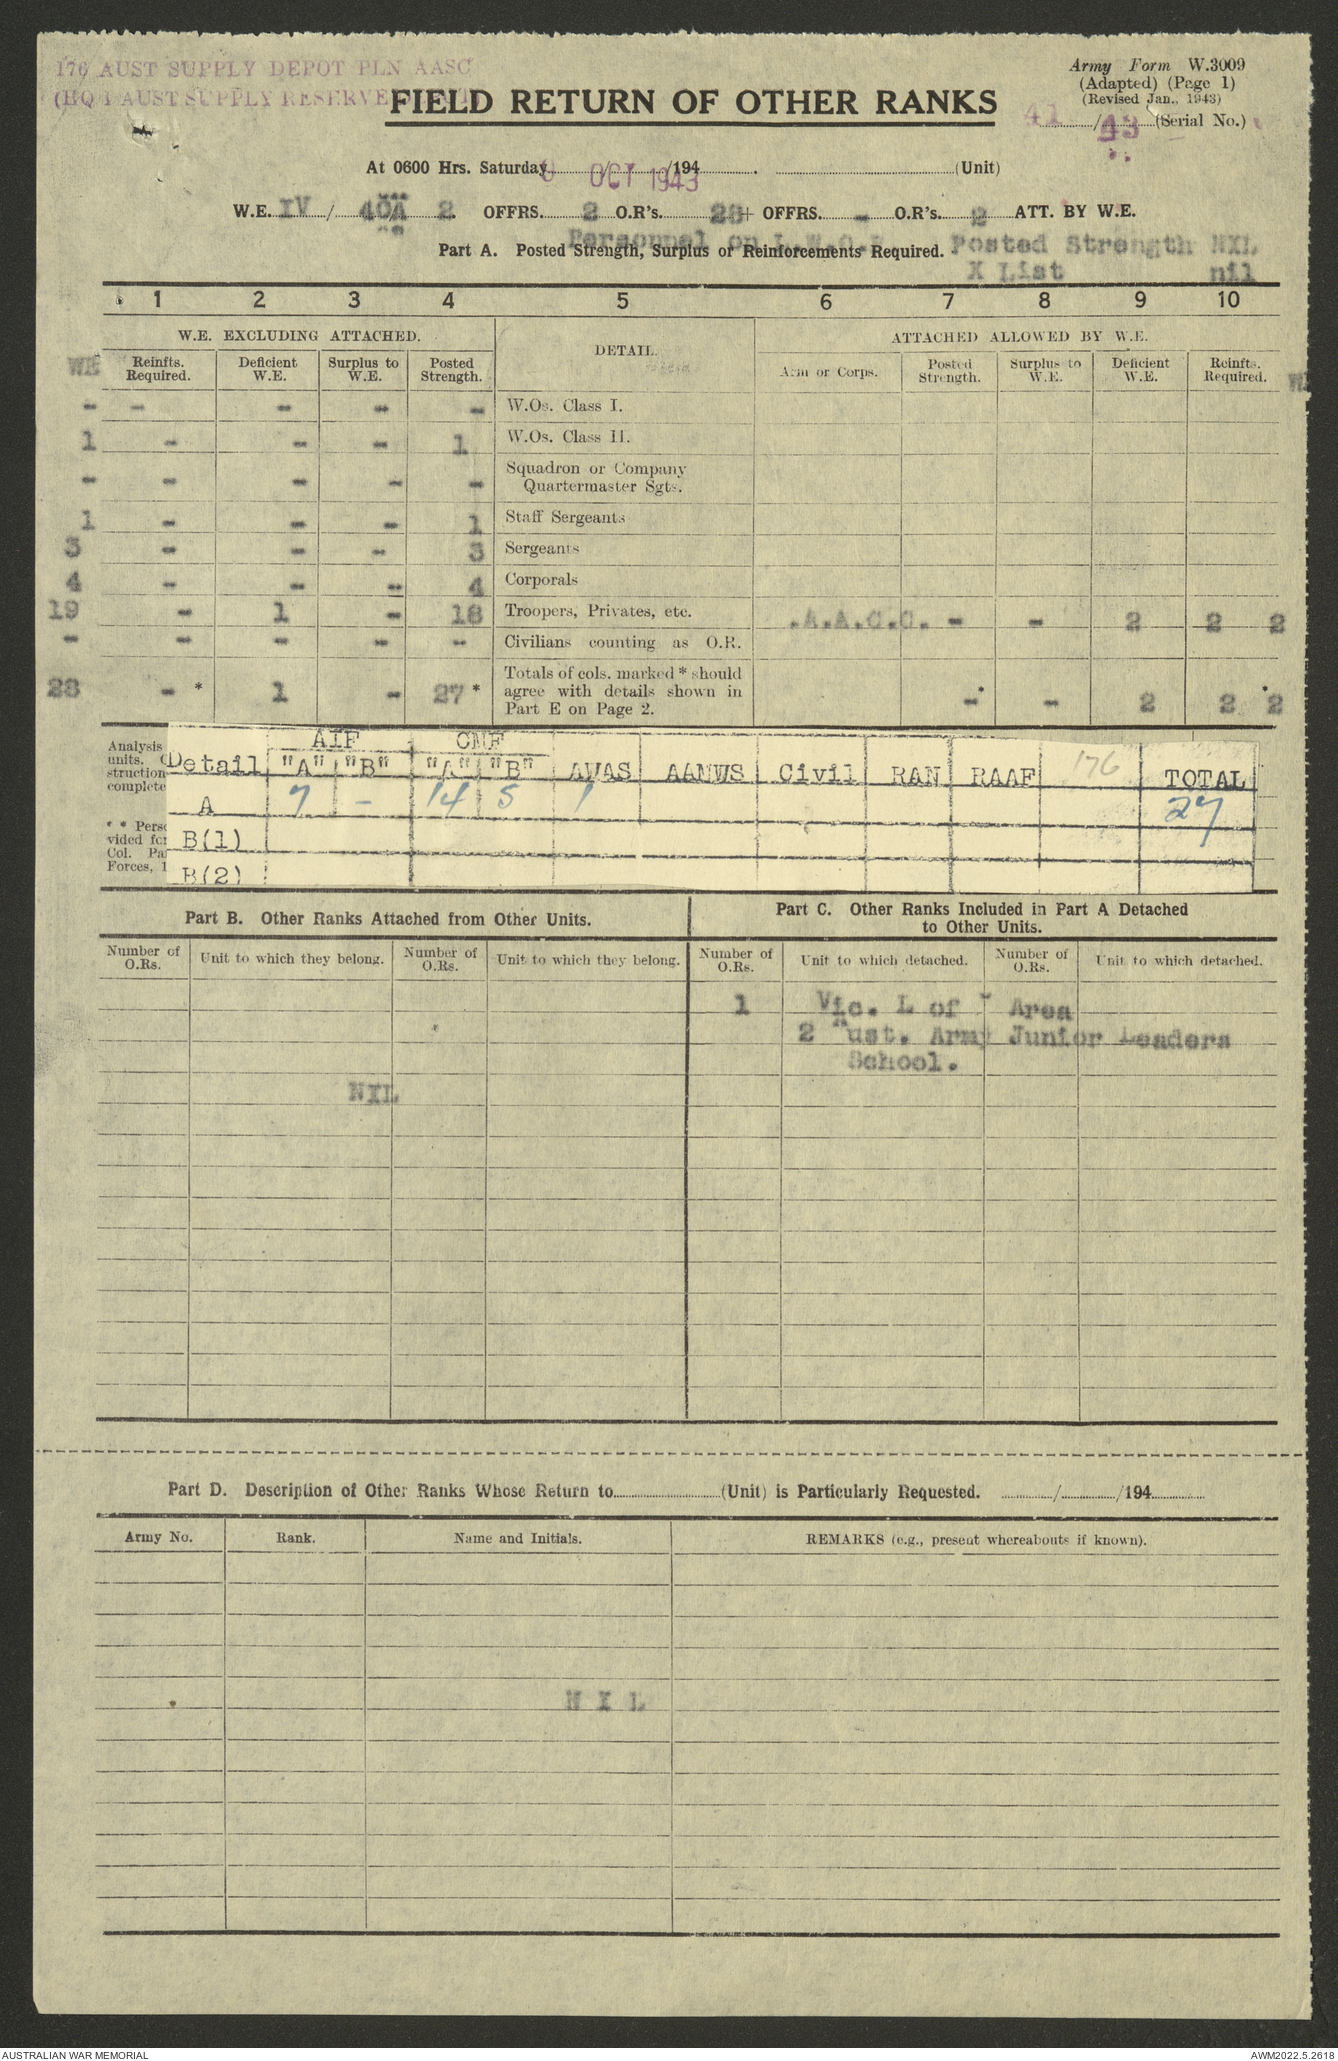 176 AUST SUPPLY DEPOT PLN AASC
(HQ 1 AUST SUPPLY RESERVE
Army Form W.3009
(Adapted) (Page 1)
(Revised Jan., 1943)
41 / 43 (Serial No.)
FIELD RETURN OF OTHER RANKS
At 0600 Hrs. Saturday OCT 1943 /194 . (Unit)
W.E. IV / 40A 2 OFFRS. 2 O.R's. 28 + OFFRS. - O.R's. 2 ATT. BY W.E.
Personnel on Posted Strength NIL
Part A. Posted Strength, Surplus or Reinforcements Required.
X List nil
1 2 3 4 5 6 7 8 9 10
W.E. EXCLUDING ATTACHED. DETAIL. ATTACHED ALLOWED BY W.E.
WE Reinfts. Required. Deficient W.E. Surplus to W.E. Posted Strength. Arm or Corps. Posted Strength. Surplus to W.E. Deficient W.E. Reinfts. Required.
- - - - - W.Os. Class I.
1 - - - 1 W.Os. Class II.
- - - - - Squadron or Company
Quartermaster Sgts.
1 - - - 1 Staff Sergeants
3 - - - 3 Sergeants
4 - - - 4 Corporals
19 - 1 - 18 Troopers, Privates, etc. .A.A.C.C. - - 2 2 2
- - - - - Civilians counting as O.R.
28 - * 1 - 27 * Totals of cols. marked * should
agree with details shown in
Part E on Page 2. - * - 2 2 * 2
Analysis
units.
struction
complete
AIF CMF
Detail "A" "B" "A" "B" AWAS AAMWS Civil RAN RAAF 176 TOTAL
A 7 - 14 5 1 27
* * Perso
vided for
Col. Pa
Forces, 1
B(1)
B(2)
Part B. Other Ranks Attached from Other Units.
Part C. Other Ranks Included in Part A Detached
to Other Units.
Number of O.Rs. Unit to which they belong. Number of O.Rs. Unit to which they belong. Number of O.Rs. Unit to which detached. Number of O.Rs. Unit to which detached.
1 Vic. L of Area
2 Aust. Army Junior Leaders
School.
NIL
Part D. Description of Other Ranks Whose Return to (Unit) is Particularly Requested. / /194
Army No. Rank. Name and Initials. REMARKS (e.g., present whereabouts if known).
N I L
AUSTRALIAN WAR MEMORIAL
AWM2022.5.2618